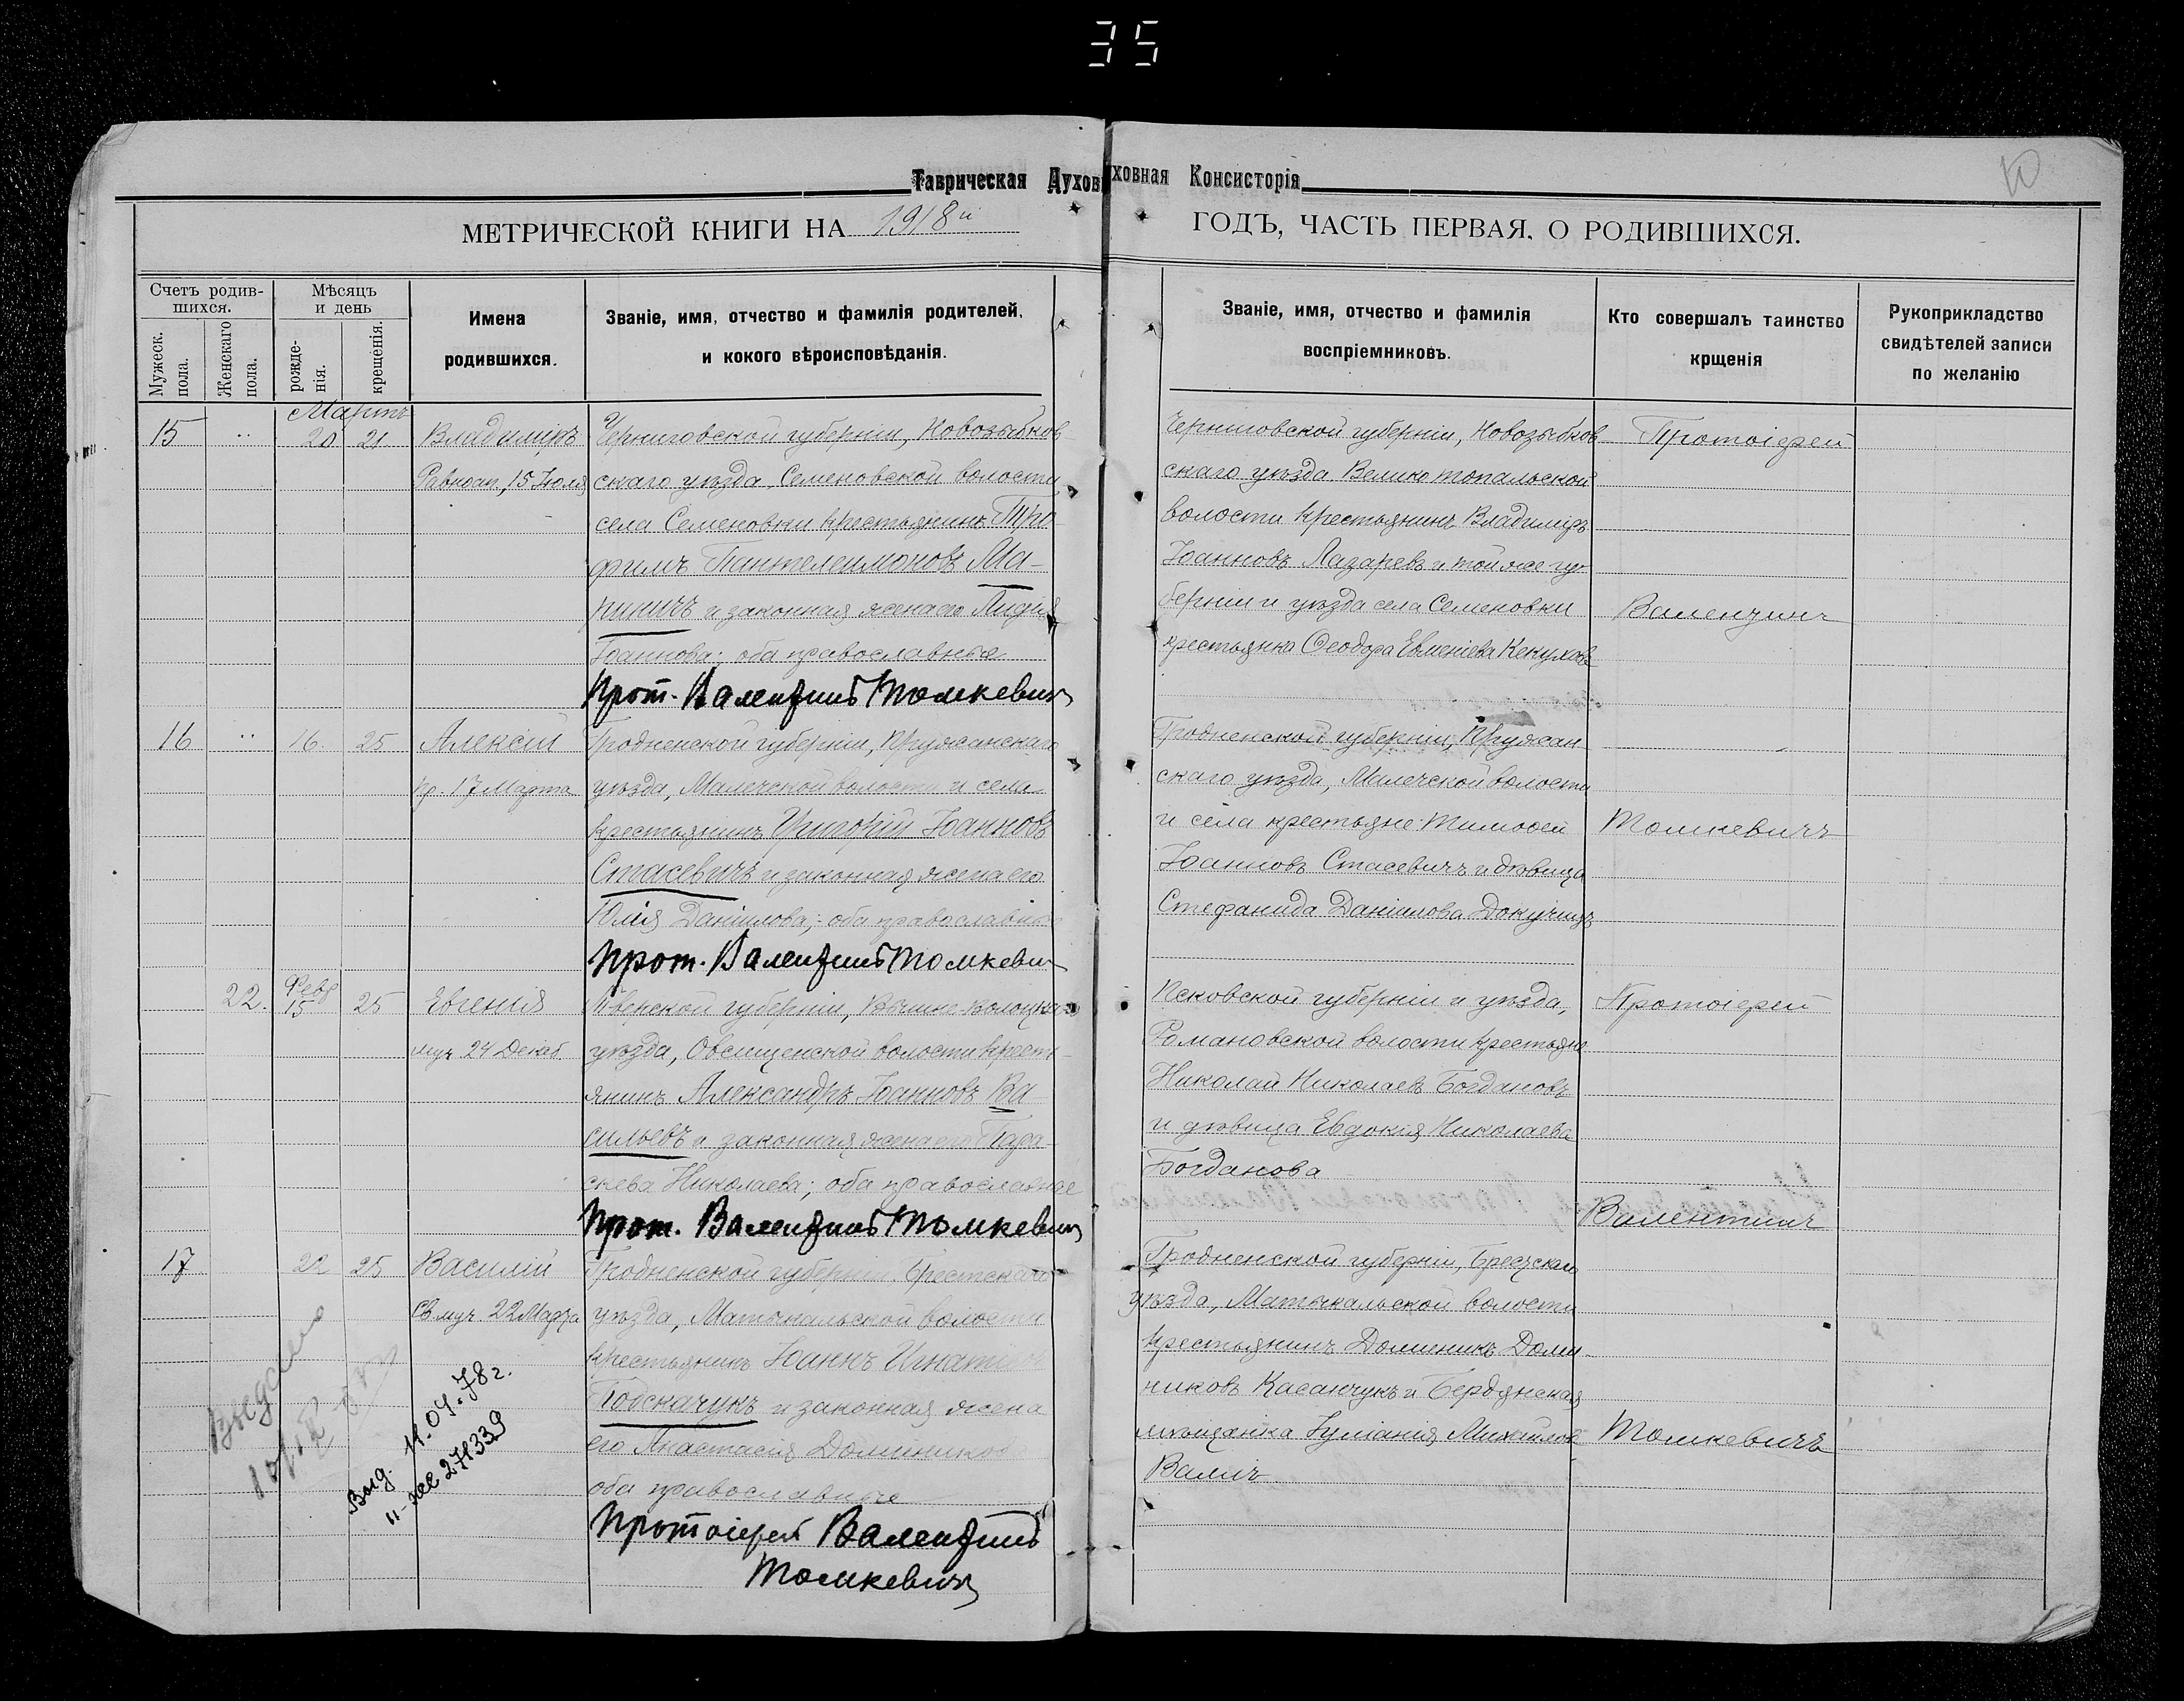 35
Таврическая Духов ховная Консисторія
МЕТРИЧЕСКОЙ КНИГИ НА 1918й
ГОДЪ, ЧАСТЬ ПЕРВАЯ, О РОДИВШИХСЯ.
Счетъ родив-
шихся.
Мужеск.
пола.
Женскаго
пола.
Мѣсяцъ
и день
рожде-
нія.
крещенія.
Имена
родившихся.
Званіе, имя, отчество и фамилія родителей,
и кокого вѣроисповѣданія.
Званіе, имя, отчество и фамилія
воспріемниковъ.
Кто совершалъ таинство
крщенія
Рукоприкладство
свидѣтелей записи
по желанію
Мартъ
15 20 21 Владиміръ
Равноап., 15 Іюля
Черниговской губерніи, Новозыбков-
скаго уѣзда, Семеновской волости,
села Семеновки крестьянинъ Тро-
фимъ Пантелеимоновъ Ма-
и законная жена его Лидія
Іоаннова; оба православные
Прот. Валентинъ Томкевичъ
Черниговской губерніи, Новозыбков
скаго уѣзда Велико топальской
волости крестьянинъ Владиміръ
Іоанновъ Лазаревъ и той же гу-
берніи и уѣзда села Семеновки
крестьянка Ѳеодора Евменіева
Протоіерей
Валентинъ
Томкевичъ
16 16. 25 Алексій
пр. 17 Марта
Гродненской губерніи, Пружанскаго
уѣзда, Малечской волости и села
крестьянинъ Григорій Іоанновъ
Стасевичъ и законная жена его
Юлія Даніилова; оба православные
Прот. Валентинъ Томкевич
Гродненской губерніи, Пружан
скаго уѣзда, Малечской волости
и села крестьяне: Тимоѳей
Іоанновъ Стасевичъ и дѣвица
Стефанида Даніилова Докучицъ
22. Февр 15 25 Евгенія
муч. 24 Декаб.
Тверской губерніи, Вышне-Волоцкаго
уѣзда, Овсищенской волости крест-
янинъ Александръ Іоанновъ Ва-
сильевъ и законная жена его Пара-
скева Николаева; оба православные
Прот. Валентинъ Томкевичъ
Псковской губерніи и уѣзда,
Романовской волости крестьяне
Николай Николаевъ Богдановъ
и дѣвица Евдокія Николаева
Богданова
Протоіерей
Валентинъ
Томкевичъ
17 22 25 Василій
Св. муч. 22 Марта
Гродненской губерніи, Брестскаго
уѣзда, Матыкальской волости
крестьянинъ Іоаннъ Игнатіевъ
Подскачукъ и законная жена
его Анастасія Домиников
оба православные
Протоіерей Валентинъ
Томкевичъ
Гродненской губерніи, Брестскаго
уѣзда, Матыкальской волости
крестьянинъ Доминикъ Доми-
никовъ Касанчукъ и Бердянская
мѣщанка Іуліанія Михайлова
Выдано
Выд. 11.04.78г.
271339